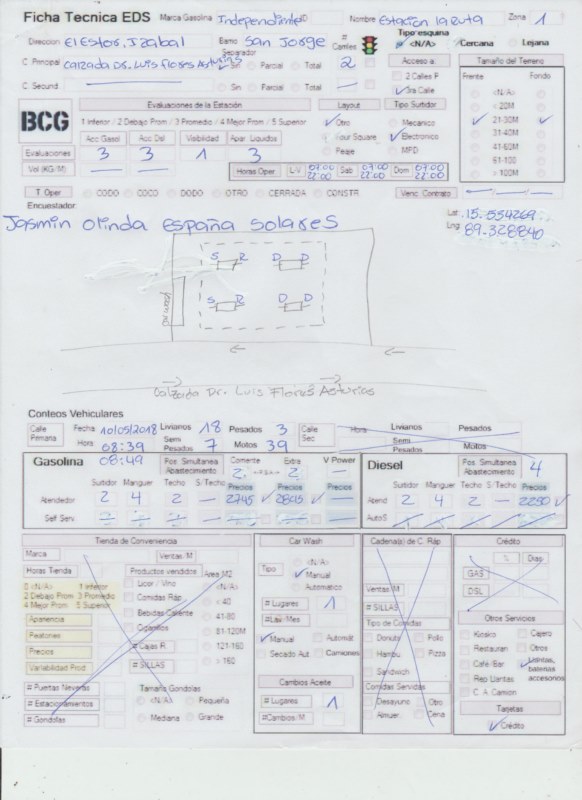 Ficha Tecnica EDS Marca Gasolina Independiente Nombre Estación la Ruta Zona 1
Direccion El Estor, Izabal Barrio San Jorge # Carriles Tipo esquina <N/A> Cercana Lejana
C. Principal Calzada Dr. Luis Flores Asturias Separador Sin Parcial Total 2 Acceso a: Tamaño del Terreno
C. Secund. Sin Parcial Total 2 Calles P. Frente Fondo
1ra Calle <N/A>
BCG Evaluaciones de la Estación Layout Tipo Surtidor < 20M
1 Inferior / 2 Debajo Prom / 3 Promedio / 4 Mejor Prom / 5 Superior Otro Mecanico 21-30M
Acc Gasol Acc Dsl Visibilidad Apar. Liquidos Four Square Electronico 31-40M
Evaluaciones 3 3 1 3 Peaje MFD 41-60M
Vol (KG/M) Horas Oper L-V 07:00 22:00 Sab 07:00 22:00 Dom 07:00 22:00 61-100
> 100M
T. Oper CODO COCO DODO OTRO CERRADA CONSTR. Venc. Contrato
Encuestador:
Jasmin Olinda España Solares
Lat: 15.554269
Lng: 89.328840
S R D D
S R D D
Calzada Dr. Luis Flores Asturias
Conteos Vehiculares
Calle Primaria Fecha 10/05/2018 Livianos 18 Pesados 3 Calle Sec Hora Livianos Pesados
Hora 08:39 Semi Pesados 7 Motos 39 Semi Pesados Motos
08:49
Gasolina Pos. Simultanea Abastecimiento Corriente 2 Extra 2 V Power Diesel Pos. Simultanea Abastecimiento 4
Surtidor Manguer Techo S/Techo Precios Precios Precios Surtidor Manguer Techo S/Techo Precios
Atendedor 2 4 2 2745 2845 Atend 2 4 2 2280
Self Serv. AutoS
Tienda de Conveniencia Car Wash Cadena(s) de C. Ráp Crédito
Marca Ventas/M % Dias
Horas Tienda Productos vendidos Area M2 Tipo <N/A> GAS
0 <N/A> 1 Inferior Licor / Vino <N/A> Manual DSL
2 Debajo Prom 3 Promedio Comidas Ráp < 40 Automatico Ventas/M
4 Mejor Prom 5 Superior Bebidas Caliente 41-80 # Lugares 1 # SILLAS
Apariencia Cigarrillos 81-120M # Lav/Mes Tipo de Comidas Otros Servicios
Peatones # Cajas R 121-160 Manual Automát Donuts Pollo Kiosko Cajero
Precios # SILLAS > 160 Secado Aut Camiones Hambu Pizza Restauran Otros
Variabilidad Prod Sandwich Café/Bar Llantas, baterias accesorios
# Puertas Neveras Tamaño Gondolas Cambios Aceite Comidas Servidas Rep Llantas
# Estacionamientos <N/A> Pequeña # Lugares 1 Desayuno Otro C. A. Camion
# Gondolas Mediana Grande # Cambios/M Almuer Cena Tarjetas
Crédito